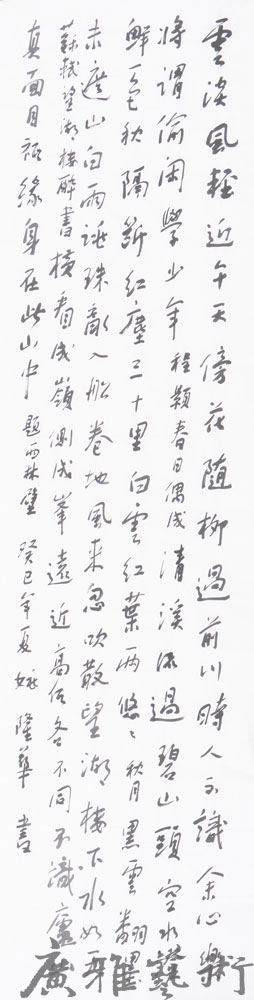 雲淡風輕近午天傍花隨柳過前川時人不識余心樂
將謂偷閑學少年程顥春日偶成清溪流過碧山頭空水
鮮一色秋隔斷紅塵三十里白雲紅葉兩悠々秋月黑雲翻墨
未遮山白雨跳珠亂入船卷地風來忽吹散望湖樓下水如
蘇軾望湖樓醉書橫看成嶺側成峯遠近高低各不同不識廬
真面目祗緣身在此山中題西林壁癸巳年夏 隆華書
廣雅藝術